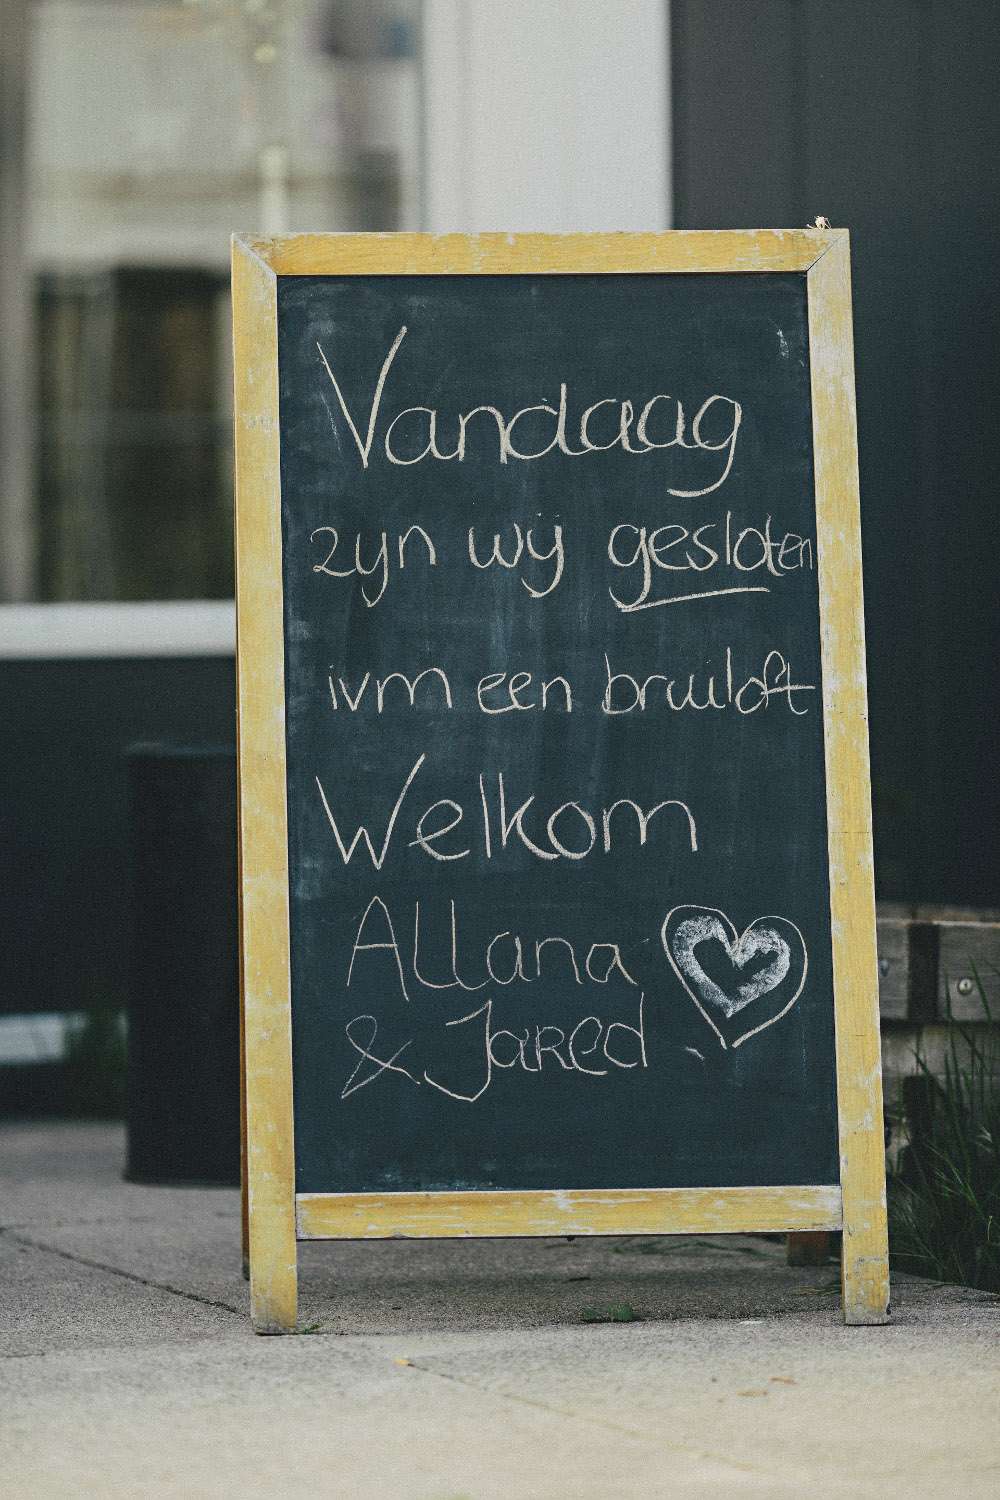 Vandaag
zijn wij gesloten
ivm een bruiloft
Welkom
Allana
& Jared